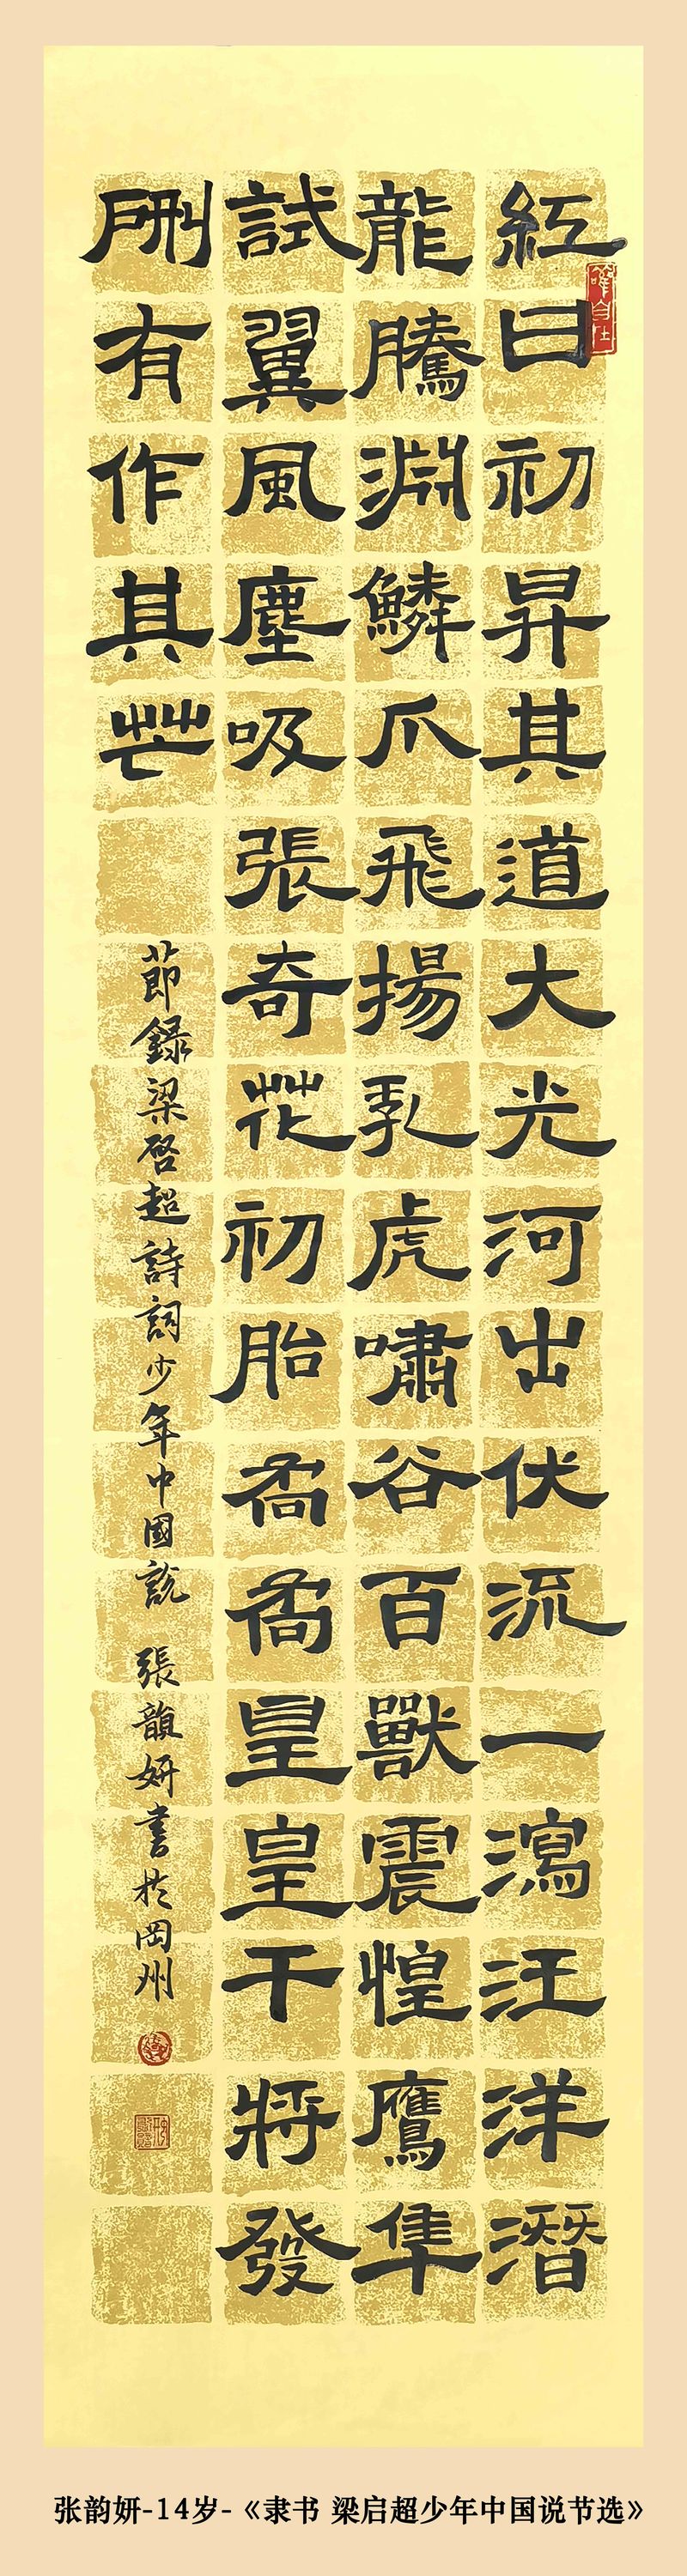 紅日初昇其道大光河出伏流一瀉汪洋潛
龍騰淵鱗爪飛揚乳虎嘯谷百獸震惶鷹隼
試翼風塵吸張奇花初胎矞矞皇皇干將發
硎有作其芒
節錄梁啓超詩詞少年中國說 張韻妍書於岡州
张韵妍-14岁-《隶书 梁启超少年中国说节选》